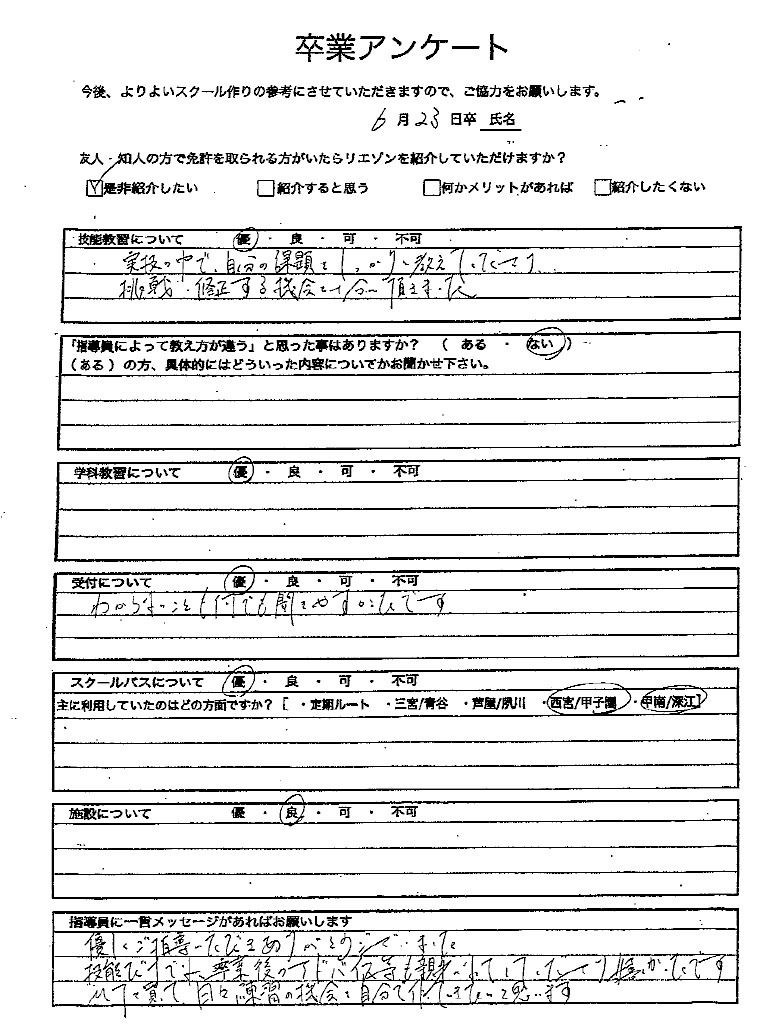 卒業アンケート
今後、よりよいスクール作りの参考にさせていただきますので、ご協力をお願いします。
6月23日卒 氏名
友人・知人の方で免許を取られる方がいたらリエゾンを紹介していただけますか?
是非紹介したい 紹介すると思う 何かメリットがあれば 紹介したくない
技能教習について 優 ・ 良 ・ 可 ・ 不可
実技の中で、自分の課題をしっかり教えて下さり
挑戦・修正する機会を十分に頂きました
「指導員によって教え方が違う」と思った事はありますか? ( ある ・ ない )
(ある)の方、具体的にはどういった内容についてかお聞かせ下さい。
学科教習について 優 ・ 良 ・ 可 ・ 不可
受付について 優 ・ 良 ・ 可 ・ 不可
わからないことも何でも聞きやすかったです
スクールバスについて 優 ・ 良 ・ 可 ・ 不可
主に利用していたのはどの方面ですか? [ ・定期ルート ・三宮/青谷 ・芦屋/夙川 ・西宮/甲子園 ・甲南/深江]
施設について 優 ・ 良 ・ 可 ・ 不可
指導員に一言メッセージがあればお願いします
優しくご指導いただきありがとうございました
技能だけでなく、卒業後のアドバイス等も親身にして下さり嬉しかったです
日々練習の機会を自分で作っていきたいと思います